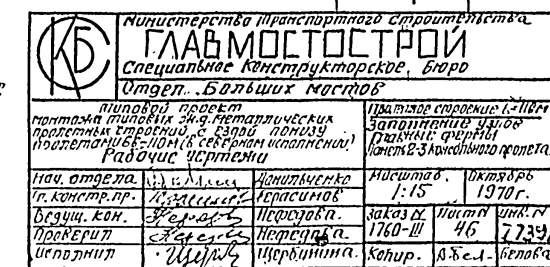 Министерство Транспортного строительства
СКБ
ГЛАВМОСТОСТРОЙ
Специальное Конструкторское Бюро
Отдел Больших мостов
Типовой проект
монтажа типовых ж.д. металлических
пролетных строений с ездой понизу
пролетами 66-110м (в северном исполнении)
Рабочие чертежи
Пролетное строение L=110м
Заполнение узлов
Главные фермы
Панель 2-3 консольного пролета
Нач. отдела Данильченко Масштаб Октябрь
Гл. констр. пр. Герасимов 1:15 1970г.
Ведущ. кон. Нефедова. Заказ N Лист N Инв. N
Проверил Нефедова. 1760-III 46 7739
Исполнил Щербинина. Копир. Белова